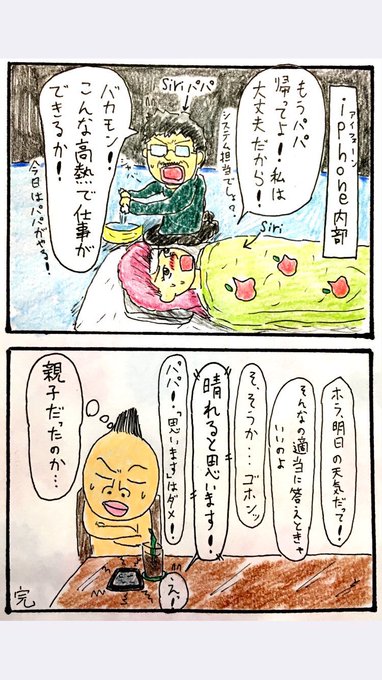 iphone内部
アイフォーン
もうパパ
帰ってよ！私は
大丈夫だから！
システム担当でしょ？
siriパパ
バカモン！
こんな高熱で仕事が
できるか！
今日はパパがやる！
ジャバ
siri
ホラ、明日の天気だって！
そんなの適当に答えときゃ
いいのよ
そ、そうか…ゴホンッ
晴れると思います！
パパ！「思います」はダメ！
え！
親子だったのか…
完